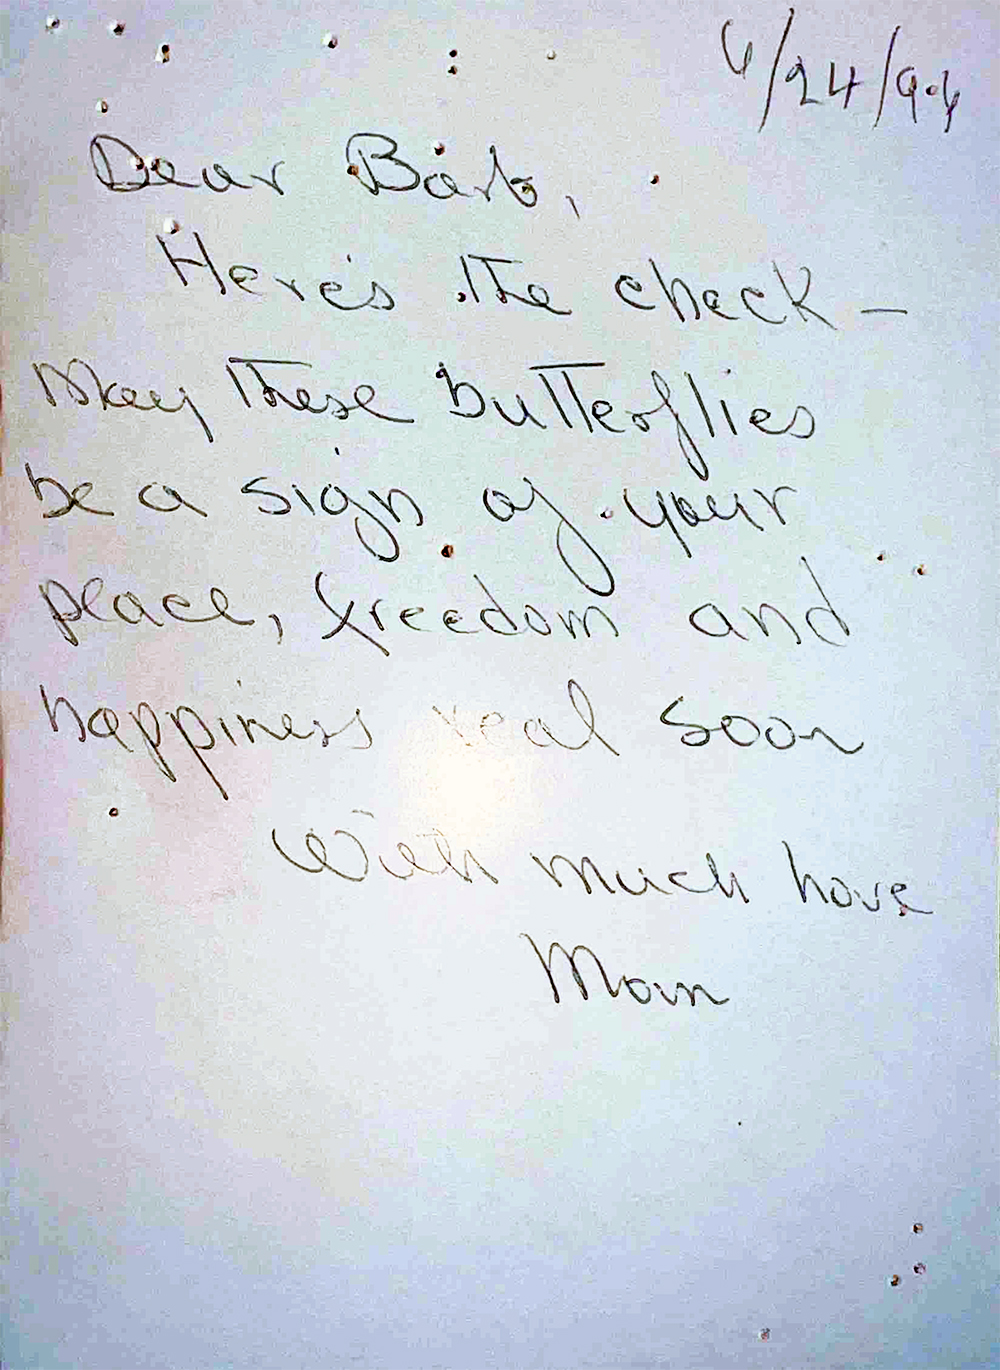 6/24/96
Dear Barb,
Here's the check –
May these butterflies
be a sign of your
peace, freedom and
happiness real soon
With much love
Mom